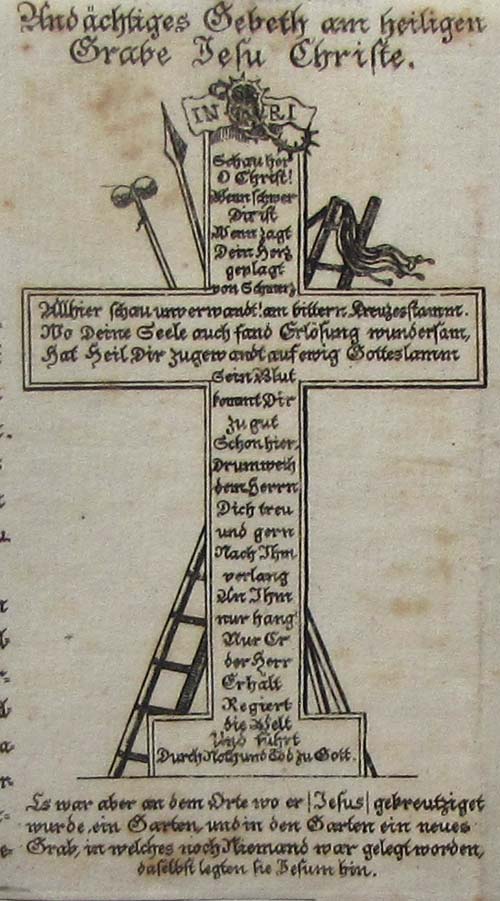 Andächtiges Gebeth am heiligen
Grabe Jesu Christe.
INRI
Schau her
O Christ!
Wenn schwer
Dir ist
Wenn zagt
Dein Herz
geplagt
von Schmerz
Allhier schau unverwandt! am bittern Kreuzesstamm.
Wo Deine Seele auch fand Erlösung wundersam,
Hat Heil Dir zugewandt auf ewig Gotteslamm
Sein Blut
kommt Dir
zu gut
Schon hier.
Drum weih
dem Herrn
Dich treu
und gern
Nach Ihm
verlang
An Ihm
nur hang'
Nur Er
der Herr
Erhält
Regiert
die Welt
Und führt
Durch Noth und Tod zu Gott.
Es war aber an dem Orte wo er |Jesus| gekreutziget
wurde, ein Garten, und in den Garten ein neues
Grab, in welches noch Niemand war gelegt worden,
daselbst legten sie Jesum hin.